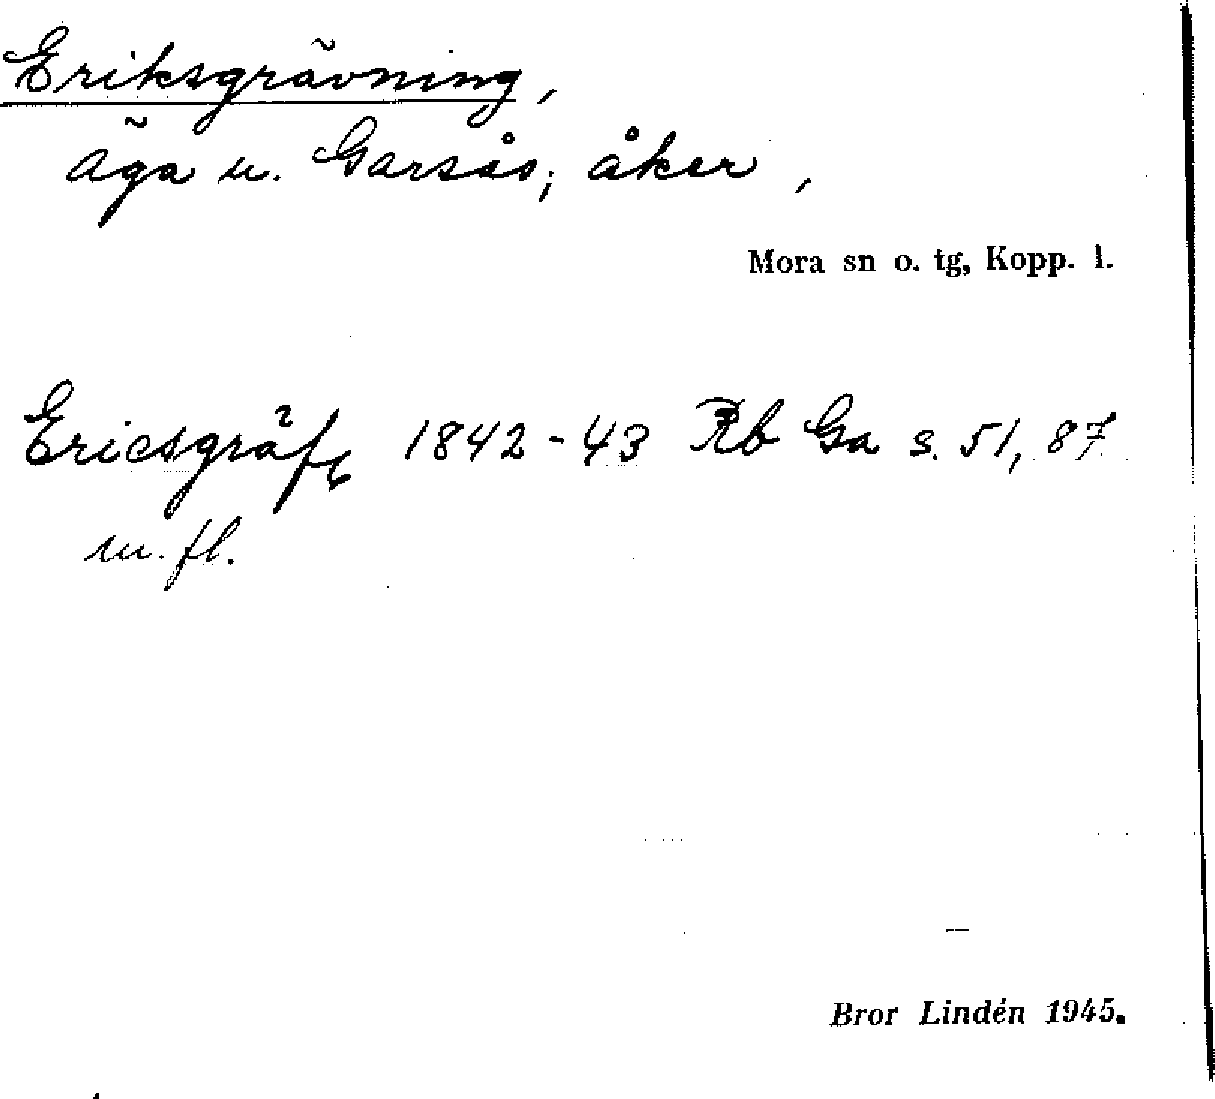 Eriksgrävning,
äga u. Garsås; åker,
Mora sn o. tg, Kopp. l.
Ericsgräfg 1842-43 Rb Ga s. 51, 87
m. fl.
Bror Lindén 1945.